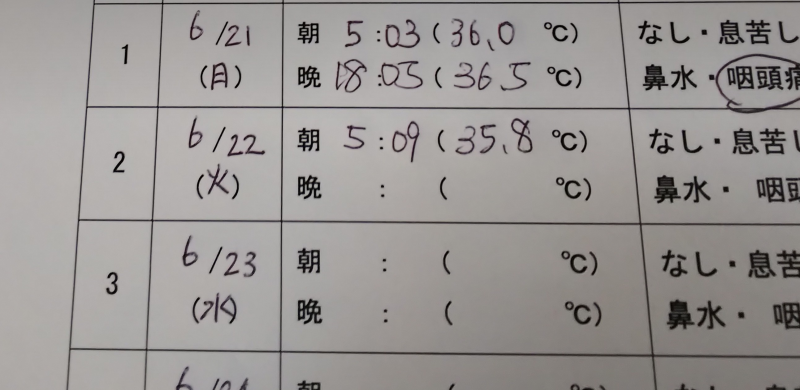 1 6/21 朝 5:03 (36.0 ℃) なし・息苦し
(月) 晩 18:05 (36.5 ℃) 鼻水・咽頭痛
2 6/22 朝 5:09 (35.8 ℃) なし・息苦し
(火) 晩 : ( ℃) 鼻水・咽頭
3 6/23 朝 : ( ℃) なし・息苦
(水) 晩 : ( ℃) 鼻水・咽